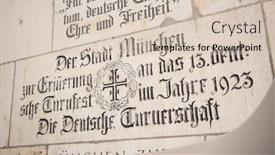 zum, deutsche
Ehre und Freiheit"
Der Stadt München
Templates for PowerPoint
zur Erinnerung an das 13. deut-
sche Turnfest im Jahre 1923
Die Deutsche Turnerschaft
MÜNCHEN ZUR